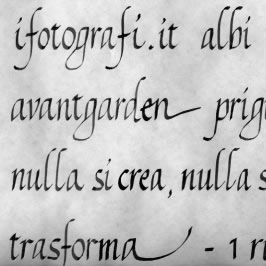 ifotografi.it albi
avantgarden prig
nulla si crea, nulla s
trasforma - 1 ru